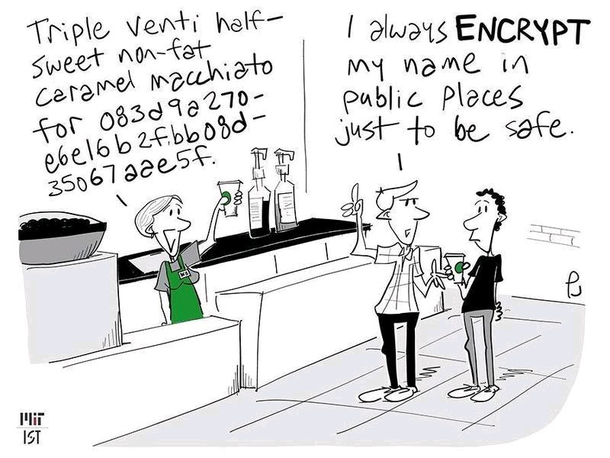 Triple Venti half-
sweet non-fat
caramel macchiato
for 083d9a270-
e6e16b2f.bb08d-
35067aae5f.
I always ENCRYPT
my name in
public places
just to be safe.
MIT
IST